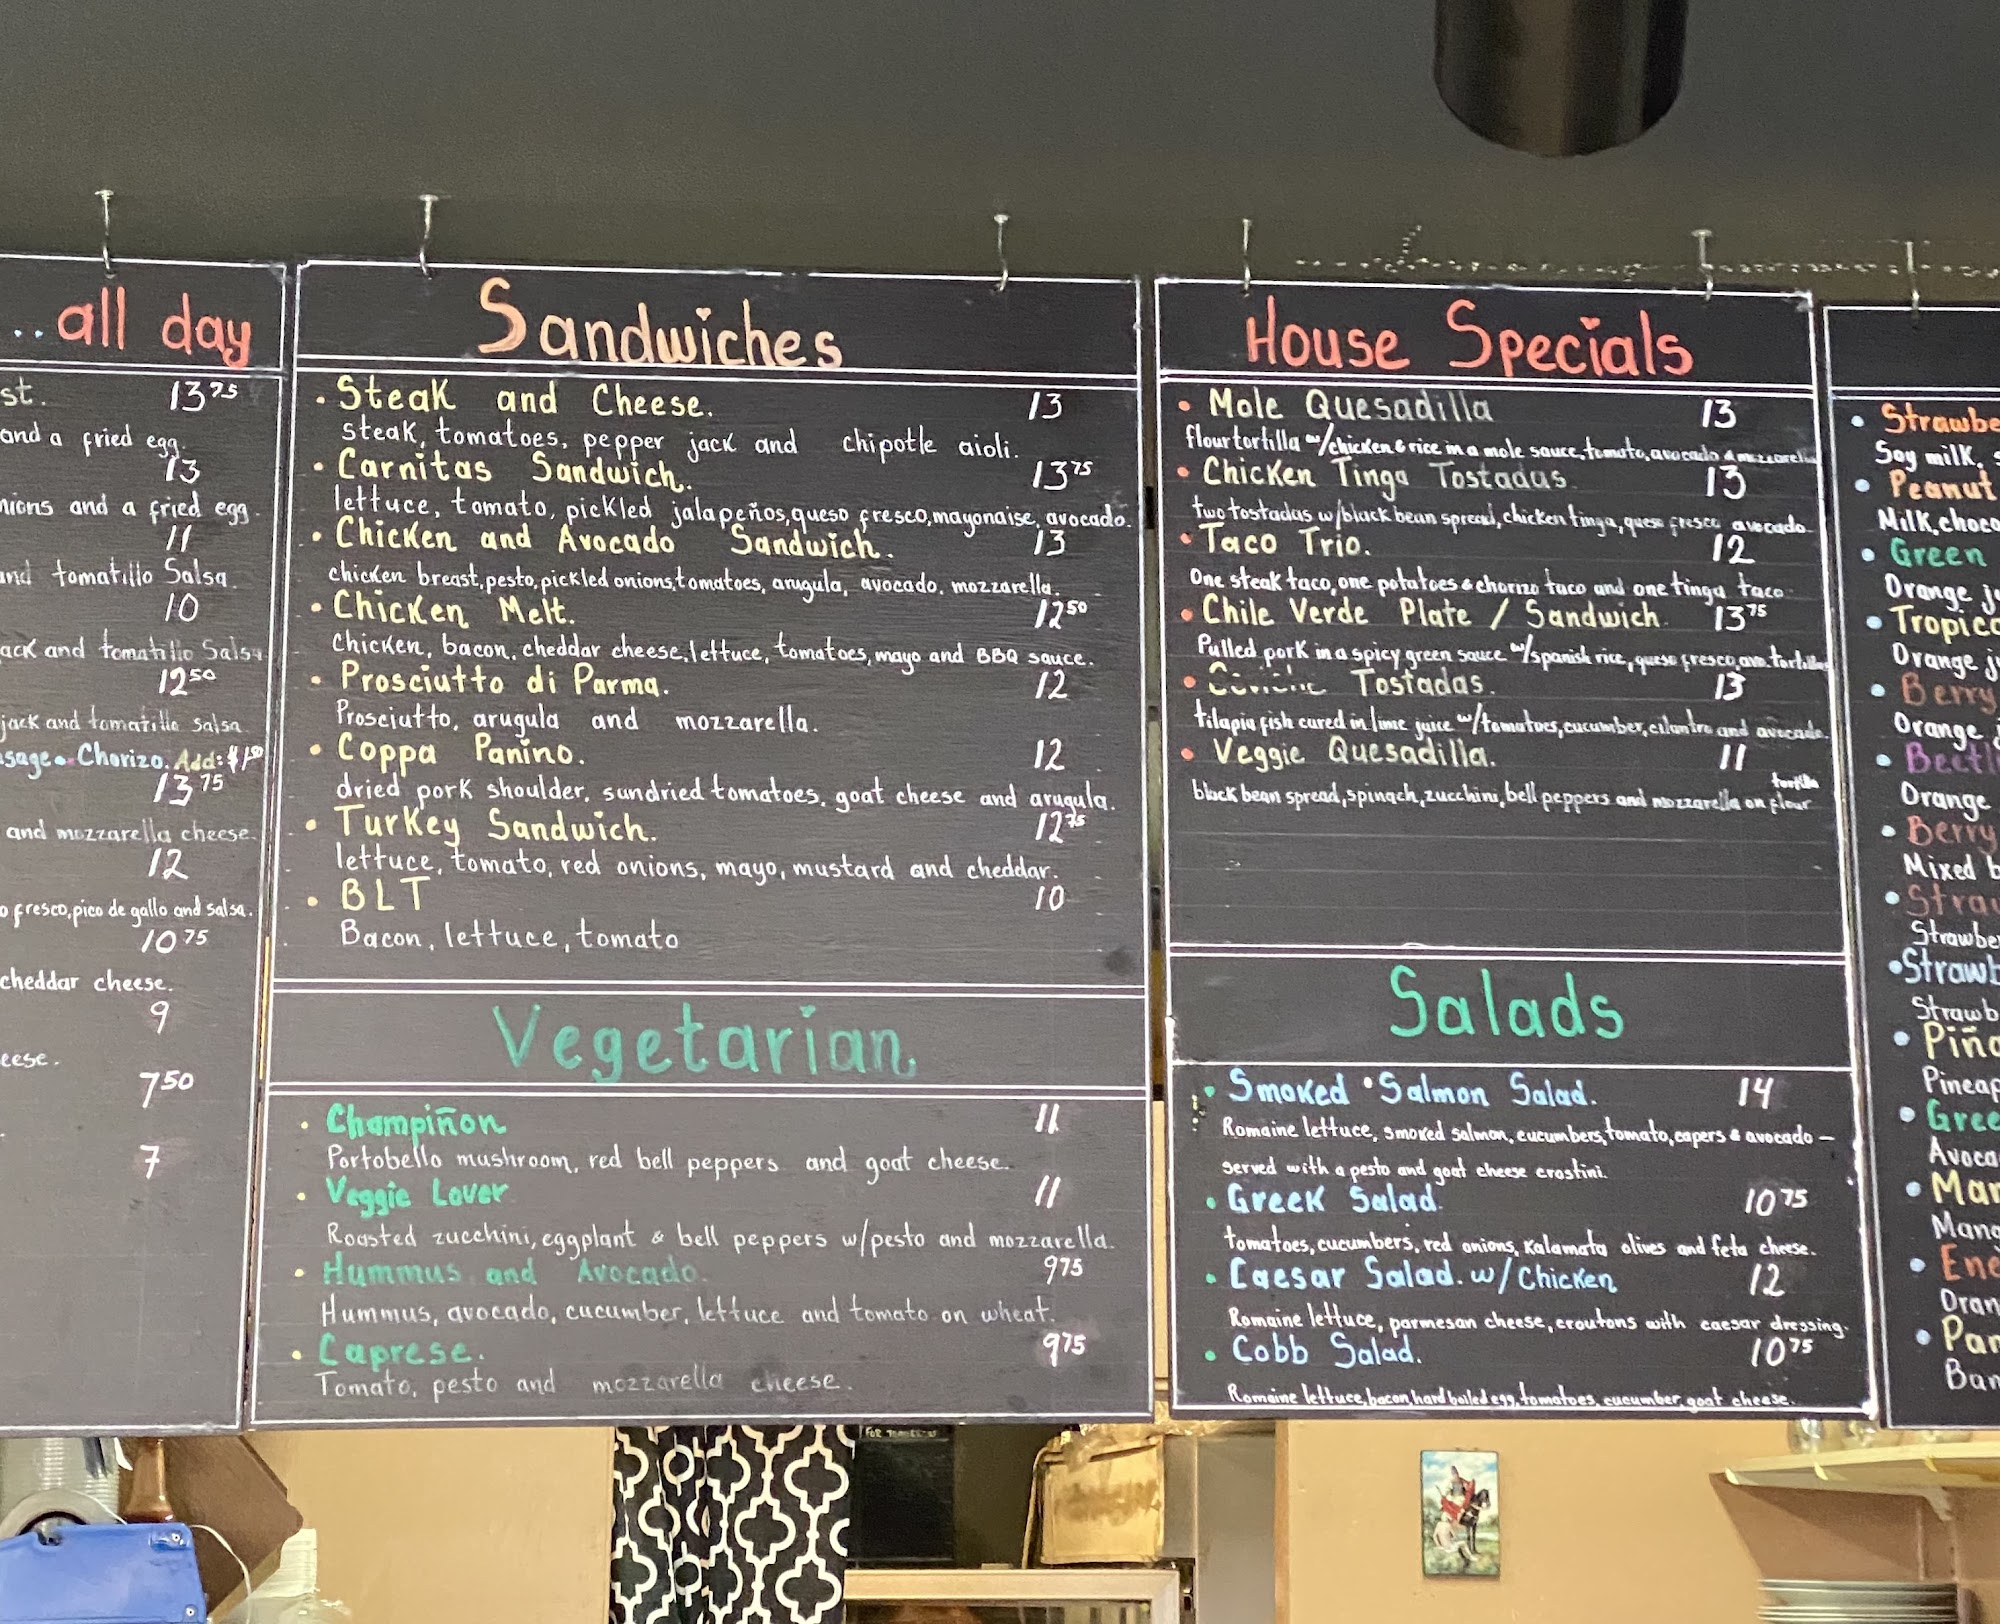 ..all day
st. 13 75
and a fried egg.
13
nions and a fried egg.
11
and tomatillo Salsa.
10
ack and tomatillo Salsa
12 50
jack and tomatillo salsa
sage Chorizo. Add: $1.50
13 75
and mozzarella cheese.
12
o fresco, pico de gallo and salsa.
10 75
cheddar cheese.
9
eese.
7 50
7
Sandwiches
• Steak and Cheese. 13
steak, tomatoes, pepper jack and chipotle aioli.
• Carnitas Sandwich. 13 75
lettuce, tomato, pickled jalapeños, queso fresco, mayonaise, avocado.
• Chicken and Avocado Sandwich. 13
chicken breast, pesto, pickled onions, tomatoes, arugula, avocado, mozzarella.
• Chicken Melt. 12 50
Chicken, bacon, cheddar cheese, lettuce, tomatoes, mayo and BBQ sauce.
• Prosciutto di Parma. 12
Prosciutto, arugula and mozzarella.
• Coppa Panino. 12
dried pork shoulder, sundried tomatoes, goat cheese and arugula.
• Turkey Sandwich. 12 75
lettuce, tomato, red onions, mayo, mustard and cheddar.
• BLT 10
Bacon, lettuce, tomato
Vegetarian
• Champiñon 11
Portobello mushroom, red bell peppers and goat cheese.
• Veggie Lover 11
Roasted zucchini, eggplant & bell peppers w/pesto and mozzarella.
• Hummus and Avocado. 9 75
Hummus, avocado, cucumber, lettuce and tomato on wheat.
• Caprese. 9 75
Tomato, pesto and mozzarella cheese.
House Specials
• Mole Quesadilla 13
flour tortilla w/chicken & rice in a mole sauce, tomato, avocado & mozzarella
• Chicken Tinga Tostadas. 13
two tostadas w/black bean spread, chicken tinga, queso fresco avocado.
• Taco Trio. 12
One steak taco, one potatoes & chorizo taco and one tinga taco.
• Chile Verde Plate / Sandwich. 13 75
Pulled pork in a spicy green sauce w/spanish rice, queso fresco, avo. tortillas
• Tostadas. 13
tilapia fish cured in lime juice w/tomatoes, cucumber, cilantro and avocado.
• Veggie Quesadilla. 11
black bean spread, spinach, zucchini, bell peppers and mozzarella on flour tortilla
Salads
• Smoked Salmon Salad. 14
Romaine lettuce, smoked salmon, cucumbers, tomato, capers & avocado –
served with a pesto and goat cheese crostini.
• Greek Salad. 10 75
tomatoes, cucumbers, red onions, kalamata olives and feta cheese.
• Caesar Salad. w/Chicken 12
Romaine lettuce, parmesan cheese, croutons with caesar dressing.
• Cobb Salad. 10 75
Romaine lettuce, bacon, hard boiled egg, tomatoes, cucumber, goat cheese.
• Strawbe
Soy milk, s
• Peanut
Milk, choco
• Green
Orange ju
• Tropica
Orange ju
• Berry
Orange j
• Beetl
Orange
• Berry
Mixed b
• Straw
Strawber
• Strawb
Strawb
• Piña
Pineap
• Gree
Avoca
• Man
Mang
• Ene
Oran
• Pan
Ban